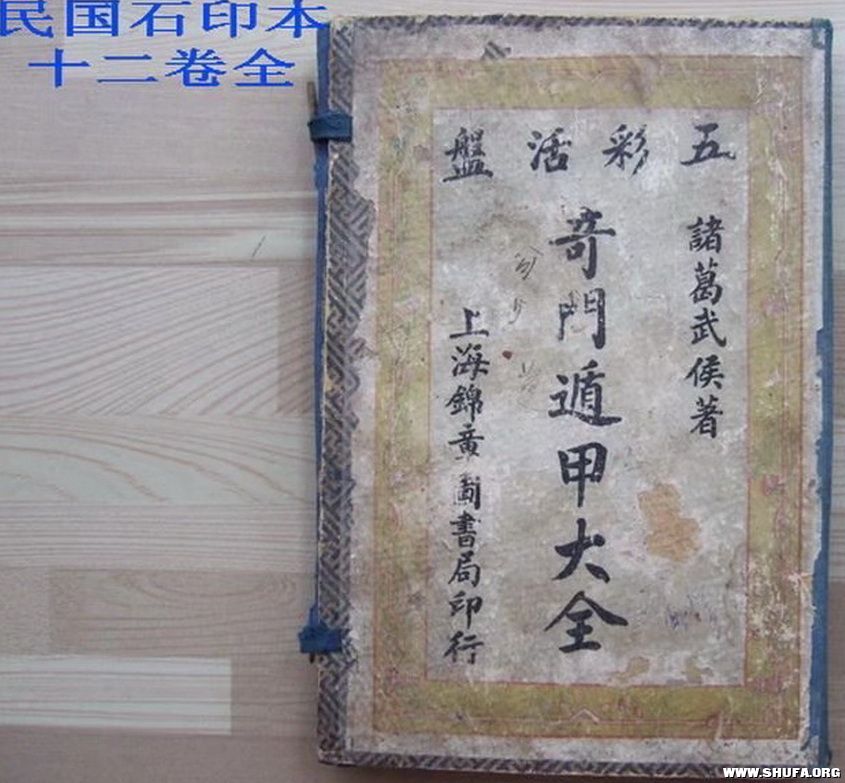 民国石印本
十二卷全
五彩活盤
諸葛武侯著
奇門遁甲大全
上海錦章圖書局印行
WWW.SHUFA.ORG